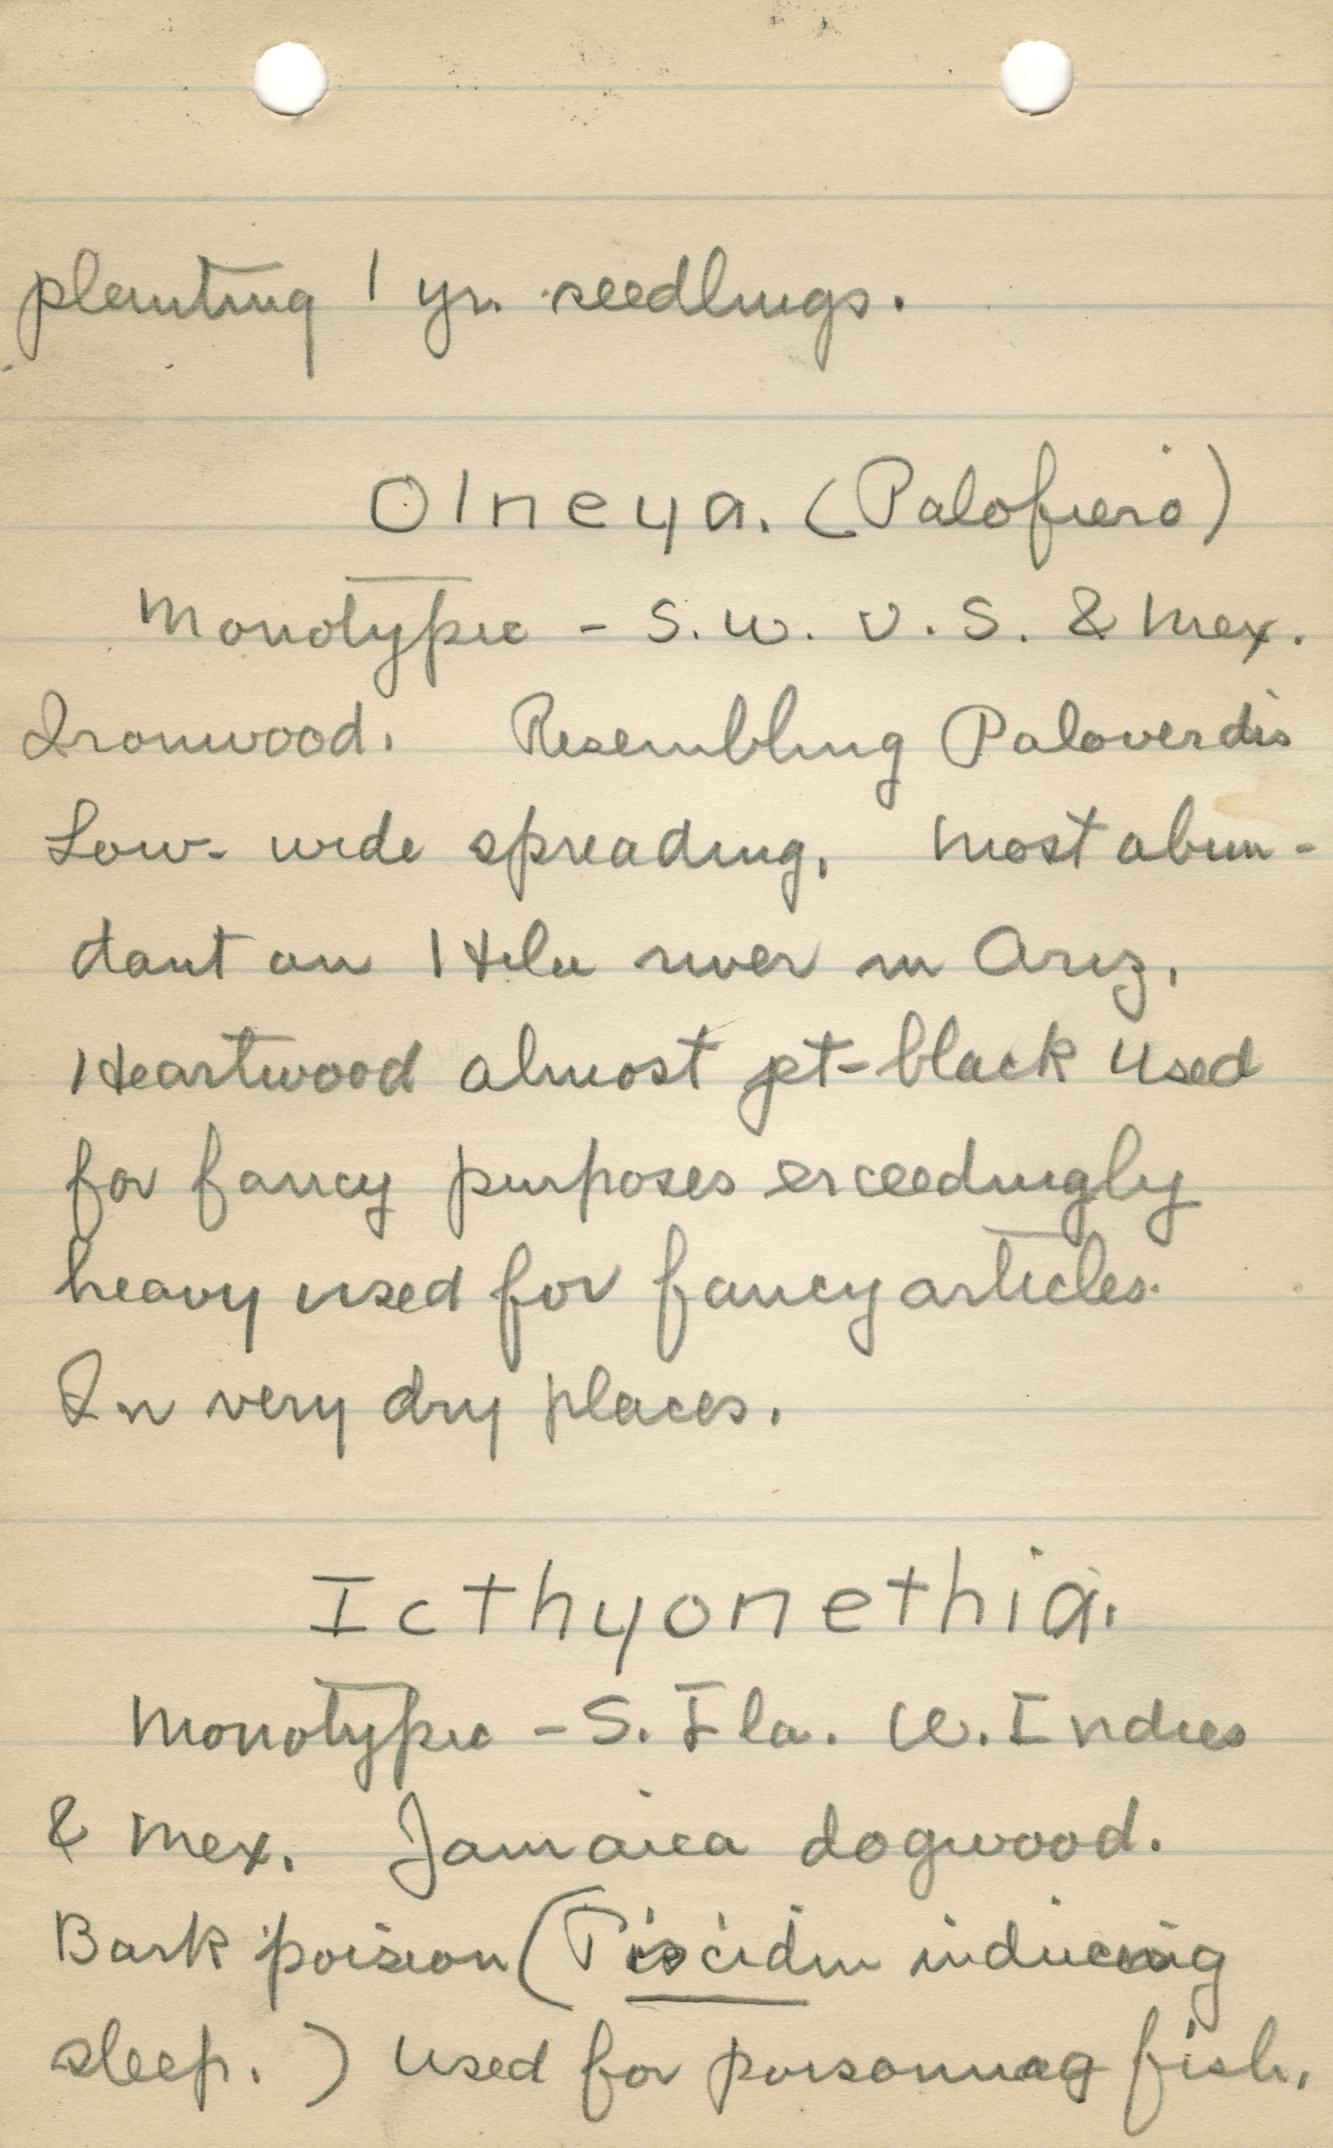 planting 1 yr. seedlings.
Olneya. (Palofiero)
Monotypic - S.W. U.S. & Mex.
Ironwood. Resembling Paloverdis
Low- wide spreading, most abun-
dant on Hila river in Ariz.
Heartwood almost jet-black used
for fancy purposes exceedingly
heavy used for fancy articles.
In very dry places.
Icthyonethia.
Monotypic - S. Fla. W. Indies
& Mex. Jamaica dogwood.
Bark poison (Piscidin inducing
sleep.) used for poisoning fish.